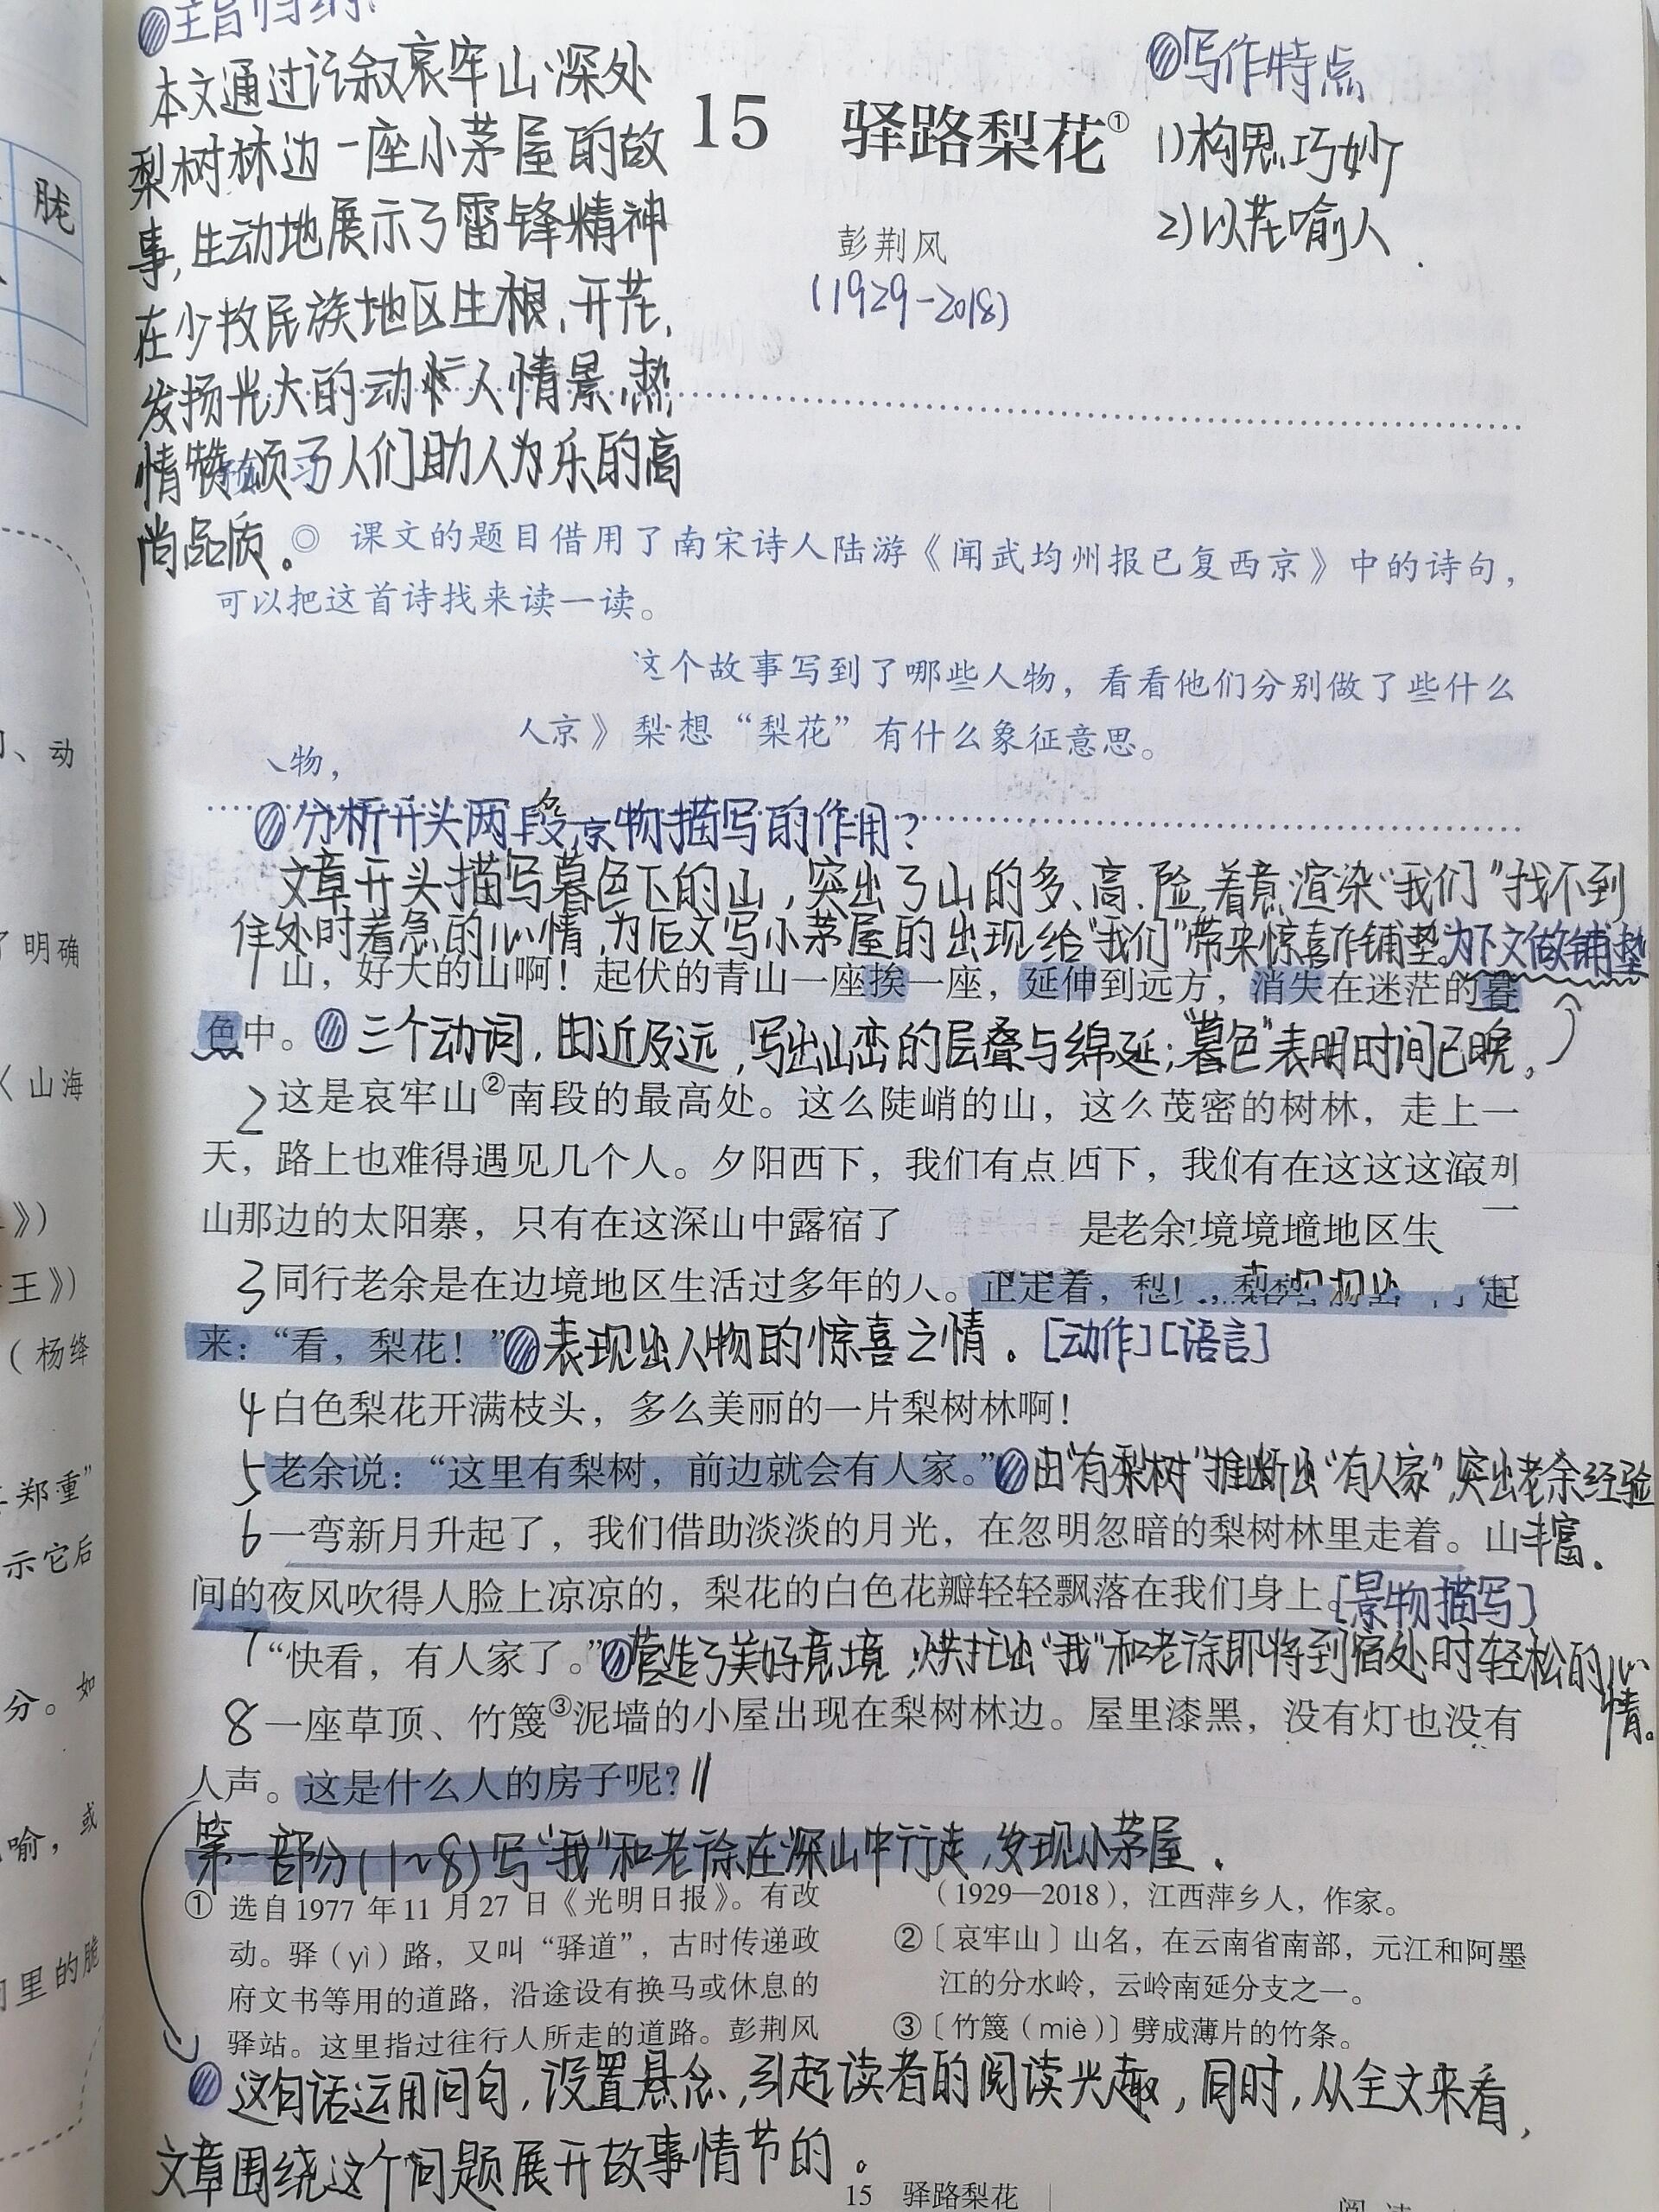 主旨归纳:
本文通过记叙哀牢山深处
梨树林边一座小茅屋的故
事,生动地展示了雷锋精神
在少数民族地区生根、开花、
发扬光大的动人情景,热
情赞颂了人们助人为乐的高
尚品质。
15 驿路梨花①
彭荆风
(1929-2018)
写作特点
1)构思巧妙
2)以花喻人
◎ 课文的题目借用了南宋诗人陆游《闻武均州报已复西京》中的诗句,
可以把这首诗找来读一读。
这个故事写到了哪些人物,看看他们分别做了些什么
人京》梨 想“梨花”有什么象征意思。
物,
分析开头两段景物描写的作用?
文章开头描写暮色下的山,突出了山的多、高、险,着意渲染“我们”找不到
住处时着急的心情,为后文写小茅屋的出现给“我们”带来惊喜作铺垫。为下文做铺垫
1 山,好大的山啊!起伏的青山一座挨一座,延伸到远方,消失在迷茫的暮
色中。三个动词,由近及远,写出山峦的层叠与绵延;“暮色”表明时间已晚。
2 这是哀牢山②南段的最高处。这么陡峭的山,这么茂密的树林,走上一
天,路上也难得遇见几个人。夕阳西下,我们有点 西下,我们有在这这这
山那边的太阳寨,只有在这深山中露宿了 是老余 境境地区生
3 同行老余是在边境地区生活过多年的人。正走着, 起
来:“看,梨花!”表现出人物的惊喜之情。[动作][语言]
4 白色梨花开满枝头,多么美丽的一片梨树林啊!
5 老余说:“这里有梨树,前边就会有人家。”由“有梨树”推断出“有人家”,突出老余经验
丰富。
6 一弯新月升起了,我们借助淡淡的月光,在忽明忽暗的梨树林里走着。山
间的夜风吹得人脸上凉凉的,梨花的白色花瓣轻轻飘落在我们身上。[景物描写]
7 “快看,有人家了。”营造了美好意境,烘托出“我”和老徐即将到宿处时轻松的心
情。
8 一座草顶、竹篾③泥墙的小屋出现在梨树林边。屋里漆黑,没有灯也没有
人声。这是什么人的房子呢?//
第一部分(1~8)写“我”和老徐在深山中行走,发现小茅屋.
① 选自1977年11月27日《光明日报》。有改
动。驿(yì)路,又叫“驿道”,古时传递政
府文书等用的道路,沿途设有换马或休息的
驿站。这里指过往行人所走的道路。彭荆风
(1929—2018),江西萍乡人,作家。
②〔哀牢山〕山名,在云南省南部,元江和阿墨
江的分水岭,云岭南延分支之一。
③〔竹篾(miè)〕劈成薄片的竹条。
这句话运用问句,设置悬念,引起读者的阅读兴趣,同时,从全文来看,
文章围绕这个问题展开故事情节的。
15 驿路梨花
胧
、动
明确
山海
》)
王》)
(杨绛
郑重”
示它后
分。如
喻,或
里的脆